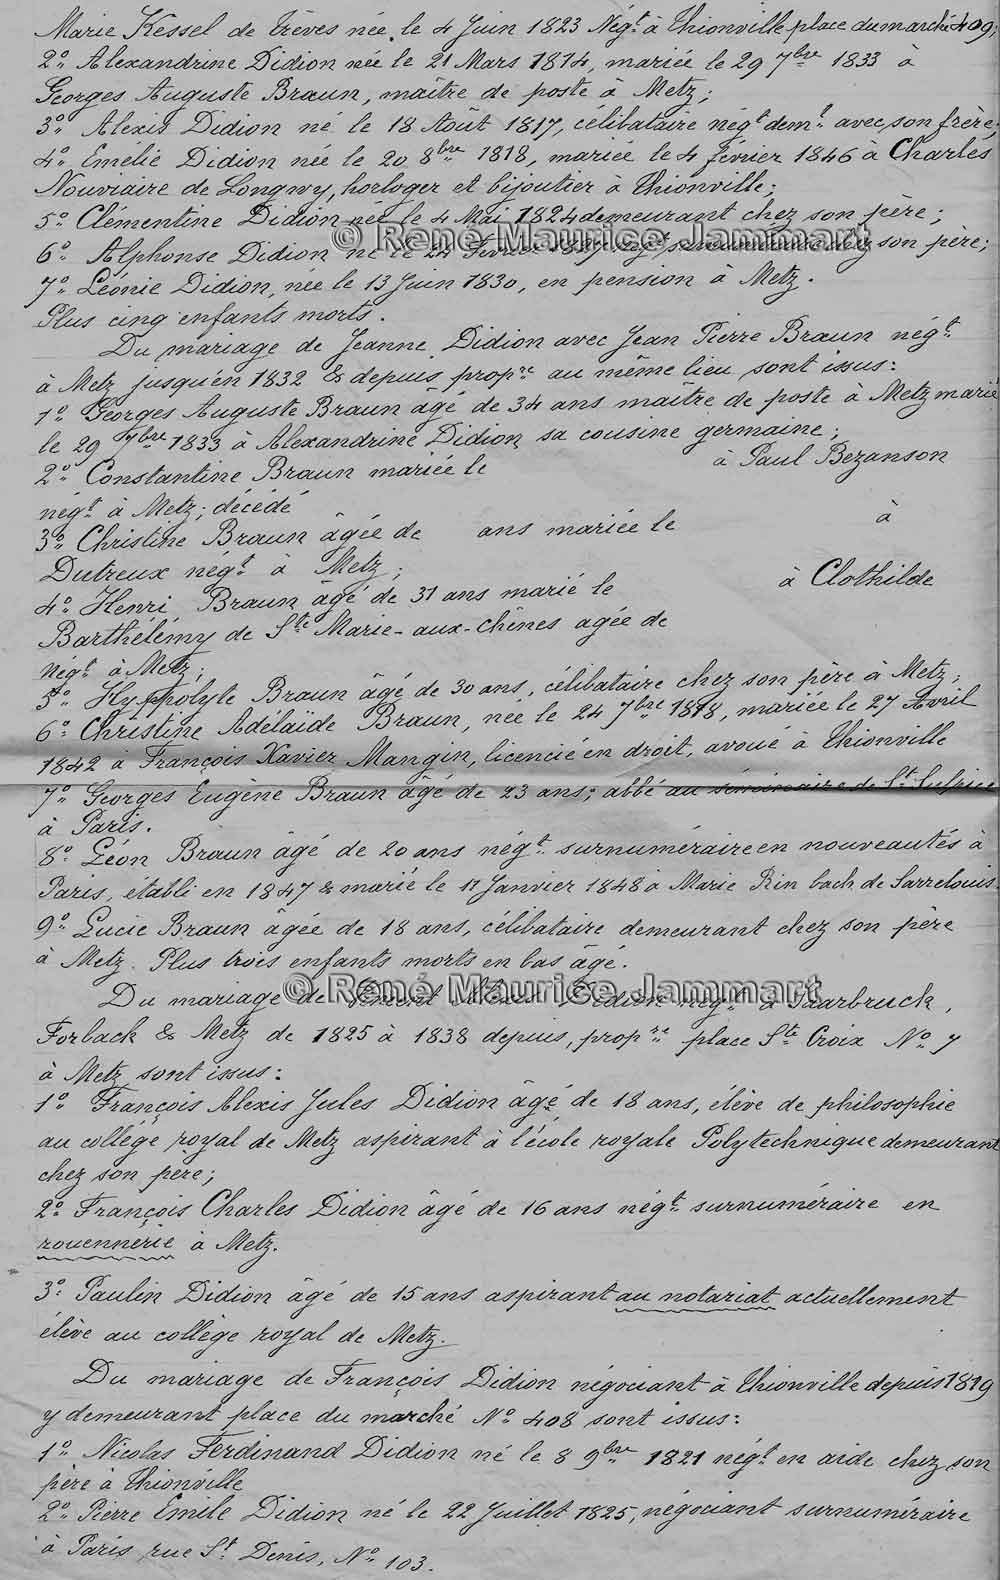 Marie Kessel de Trèves née le 4 Juin 1823 Négt à Thionville place du marché 409;
2o Alexandrine Didion née le 21 Mars 1814, mariée le 29 7bre 1833 à
Georges Auguste Braun, maître de poste à Metz;
3o Alexis Didion né le 18 Août 1817, célibataire négt demt avec son frère;
4o Emélie Didion née le 20 8bre 1818, mariée le 4 février 1846 à Charles
Nouviaire de Longwy, horloger et bijoutier à Thionville;
5o Clémentine Didion née le 4 Mai 1824 demeurant chez son père;
© René Maurice Jammart
6o Alphonse Didion né le 24 Février son père;
7o Léonie Didion, née le 13 Juin 1830, en pension à Metz.
Plus cinq enfants morts.
Du mariage de Jeanne Didion avec Jean Pierre Braun négt
à Metz jusqu'en 1832 & depuis propre au même lieu sont issus:
1o Georges Auguste Braun âgé de 34 ans maître de poste à Metz marié
le 29 7bre 1833 à Alexandrine Didion sa cousine germaine;
2o Constantine Braun mariée le à Paul Bezanson
négt à Metz; décédé
3o Christine Braun âgée de ans mariée le à
Dutreux négt à Metz;
4o Henri Braun âgé de 31 ans marié le à Clothilde
Barthélémy de Ste Marie-aux-Chênes agée de
négt à Metz;
5o Hyppolyte Braun âgé de 30 ans, célibataire chez son père à Metz;
6o Christine Adélaïde Braun, née le 24 7bre 1818, mariée le 27 Avril
1842 à François Xavier Mangin, licencié en droit, avoué à Thionville
7o Georges Eugène Braun âgé de 23 ans; abbé au séminaire de St Sulpice
à Paris.
8o Léon Braun âgé de 20 ans négt surnuméraire en nouveautés à
Paris, établi en 1847 & marié le 17 Janvier 1848 à Marie Rin bach de Sarrelouis.
9o Lucie Braun âgée de 18 ans, célibataire demeurant chez son père
à Metz. Plus trois enfants morts en bas âge.
© René Maurice Jammart
Du mariage de Didion négt à Saarbruck,
Forback & Metz de 1825 à 1838 depuis, propre place Ste Croix No 7
à Metz sont issus:
1o François Alexis Jules Didion âgé de 18 ans, élève de philosophie
au collége royal de Metz aspirant à l'école royale Polytechnique demeurant
chez son père;
2o François Charles Didion âgé de 16 ans négt surnuméraire en
rouennerie à Metz.
3o Paulin Didion âgé de 15 ans aspirant au notariat actuellement
élève au collège royal de Metz.
Du mariage de François Didion négociant à Thionville depuis 1819
y demeurant place du marché No 408 sont issus:
1o Nicolas Ferdinand Didion né le 8 9bre 1821 négt en aide chez son
père à Thionville
2o Pierre Emile Didion né le 22 Juillet 1825, négociant surnuméraire
à Paris rue St Denis, No 103.